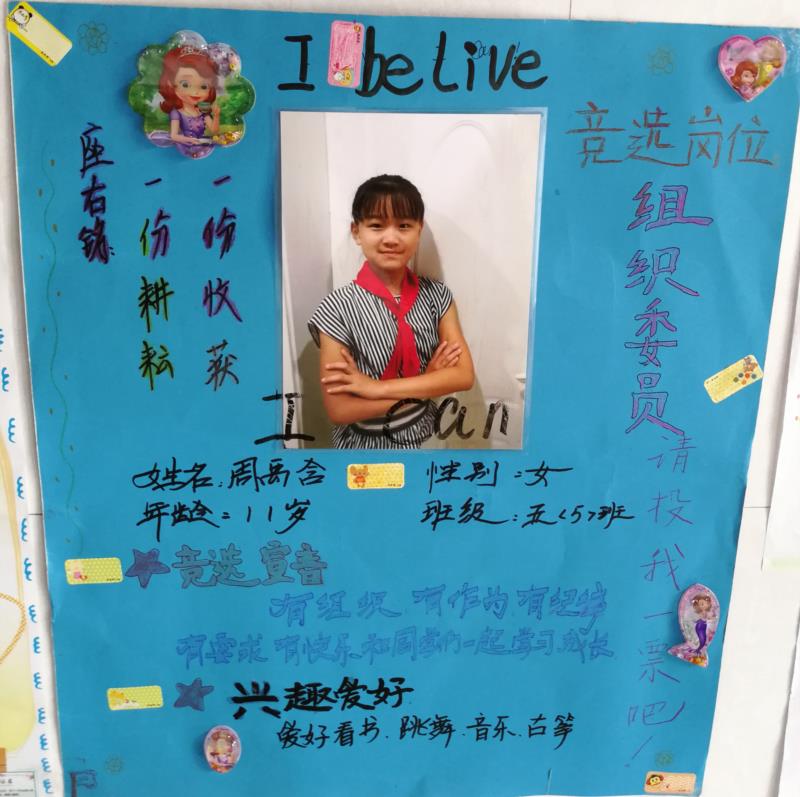 I belive
竞选岗位
组织委员
请投我一票吧！
座右铭：
一份耕耘
一份收获
I can
姓名：周禹含
性别：女
年龄：11岁
班级：五<5>班
竞选宣言
有组织 有作为 有纪律
有要求 有快乐 和同学们一起学习成长
兴趣爱好
爱好看书、跳舞、音乐、古筝